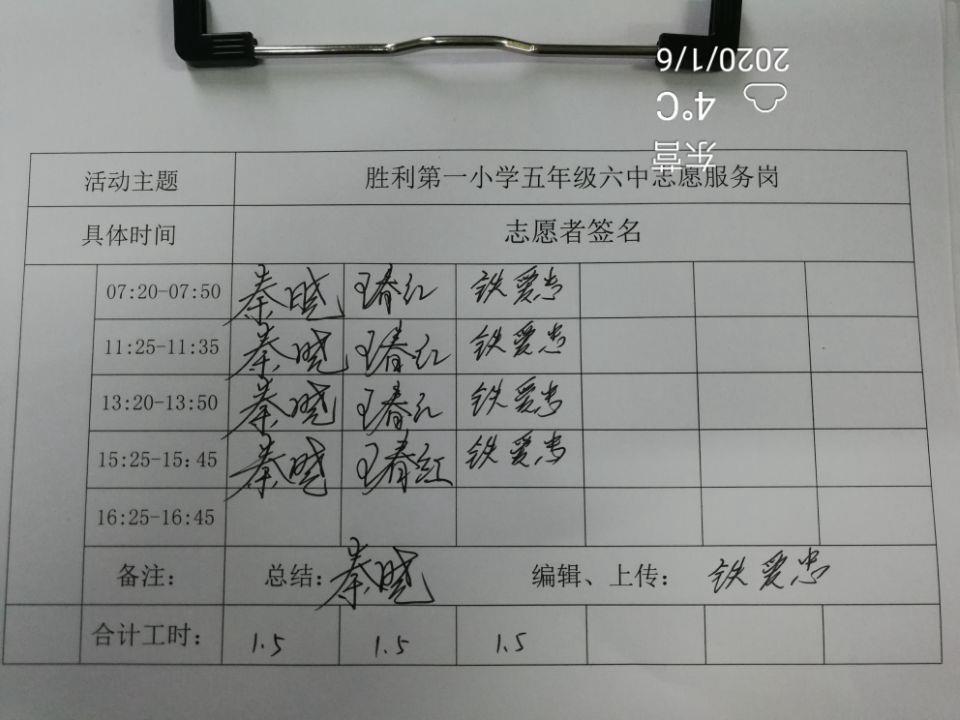 2020/1/6
4°C
东营
活动主题 胜利第一小学五年级六中志愿服务岗
具体时间 志愿者签名
07:20-07:50 秦晓 王春红 铁爱忠
11:25-11:35 秦晓 王春红 铁爱忠
13:20-13:50 秦晓 王春红 铁爱忠
15:25-15:45 秦晓 王春红 铁爱忠
16:25-16:45
备注: 总结:秦晓 编辑、上传: 铁爱忠
合计工时: 1.5 1.5 1.5